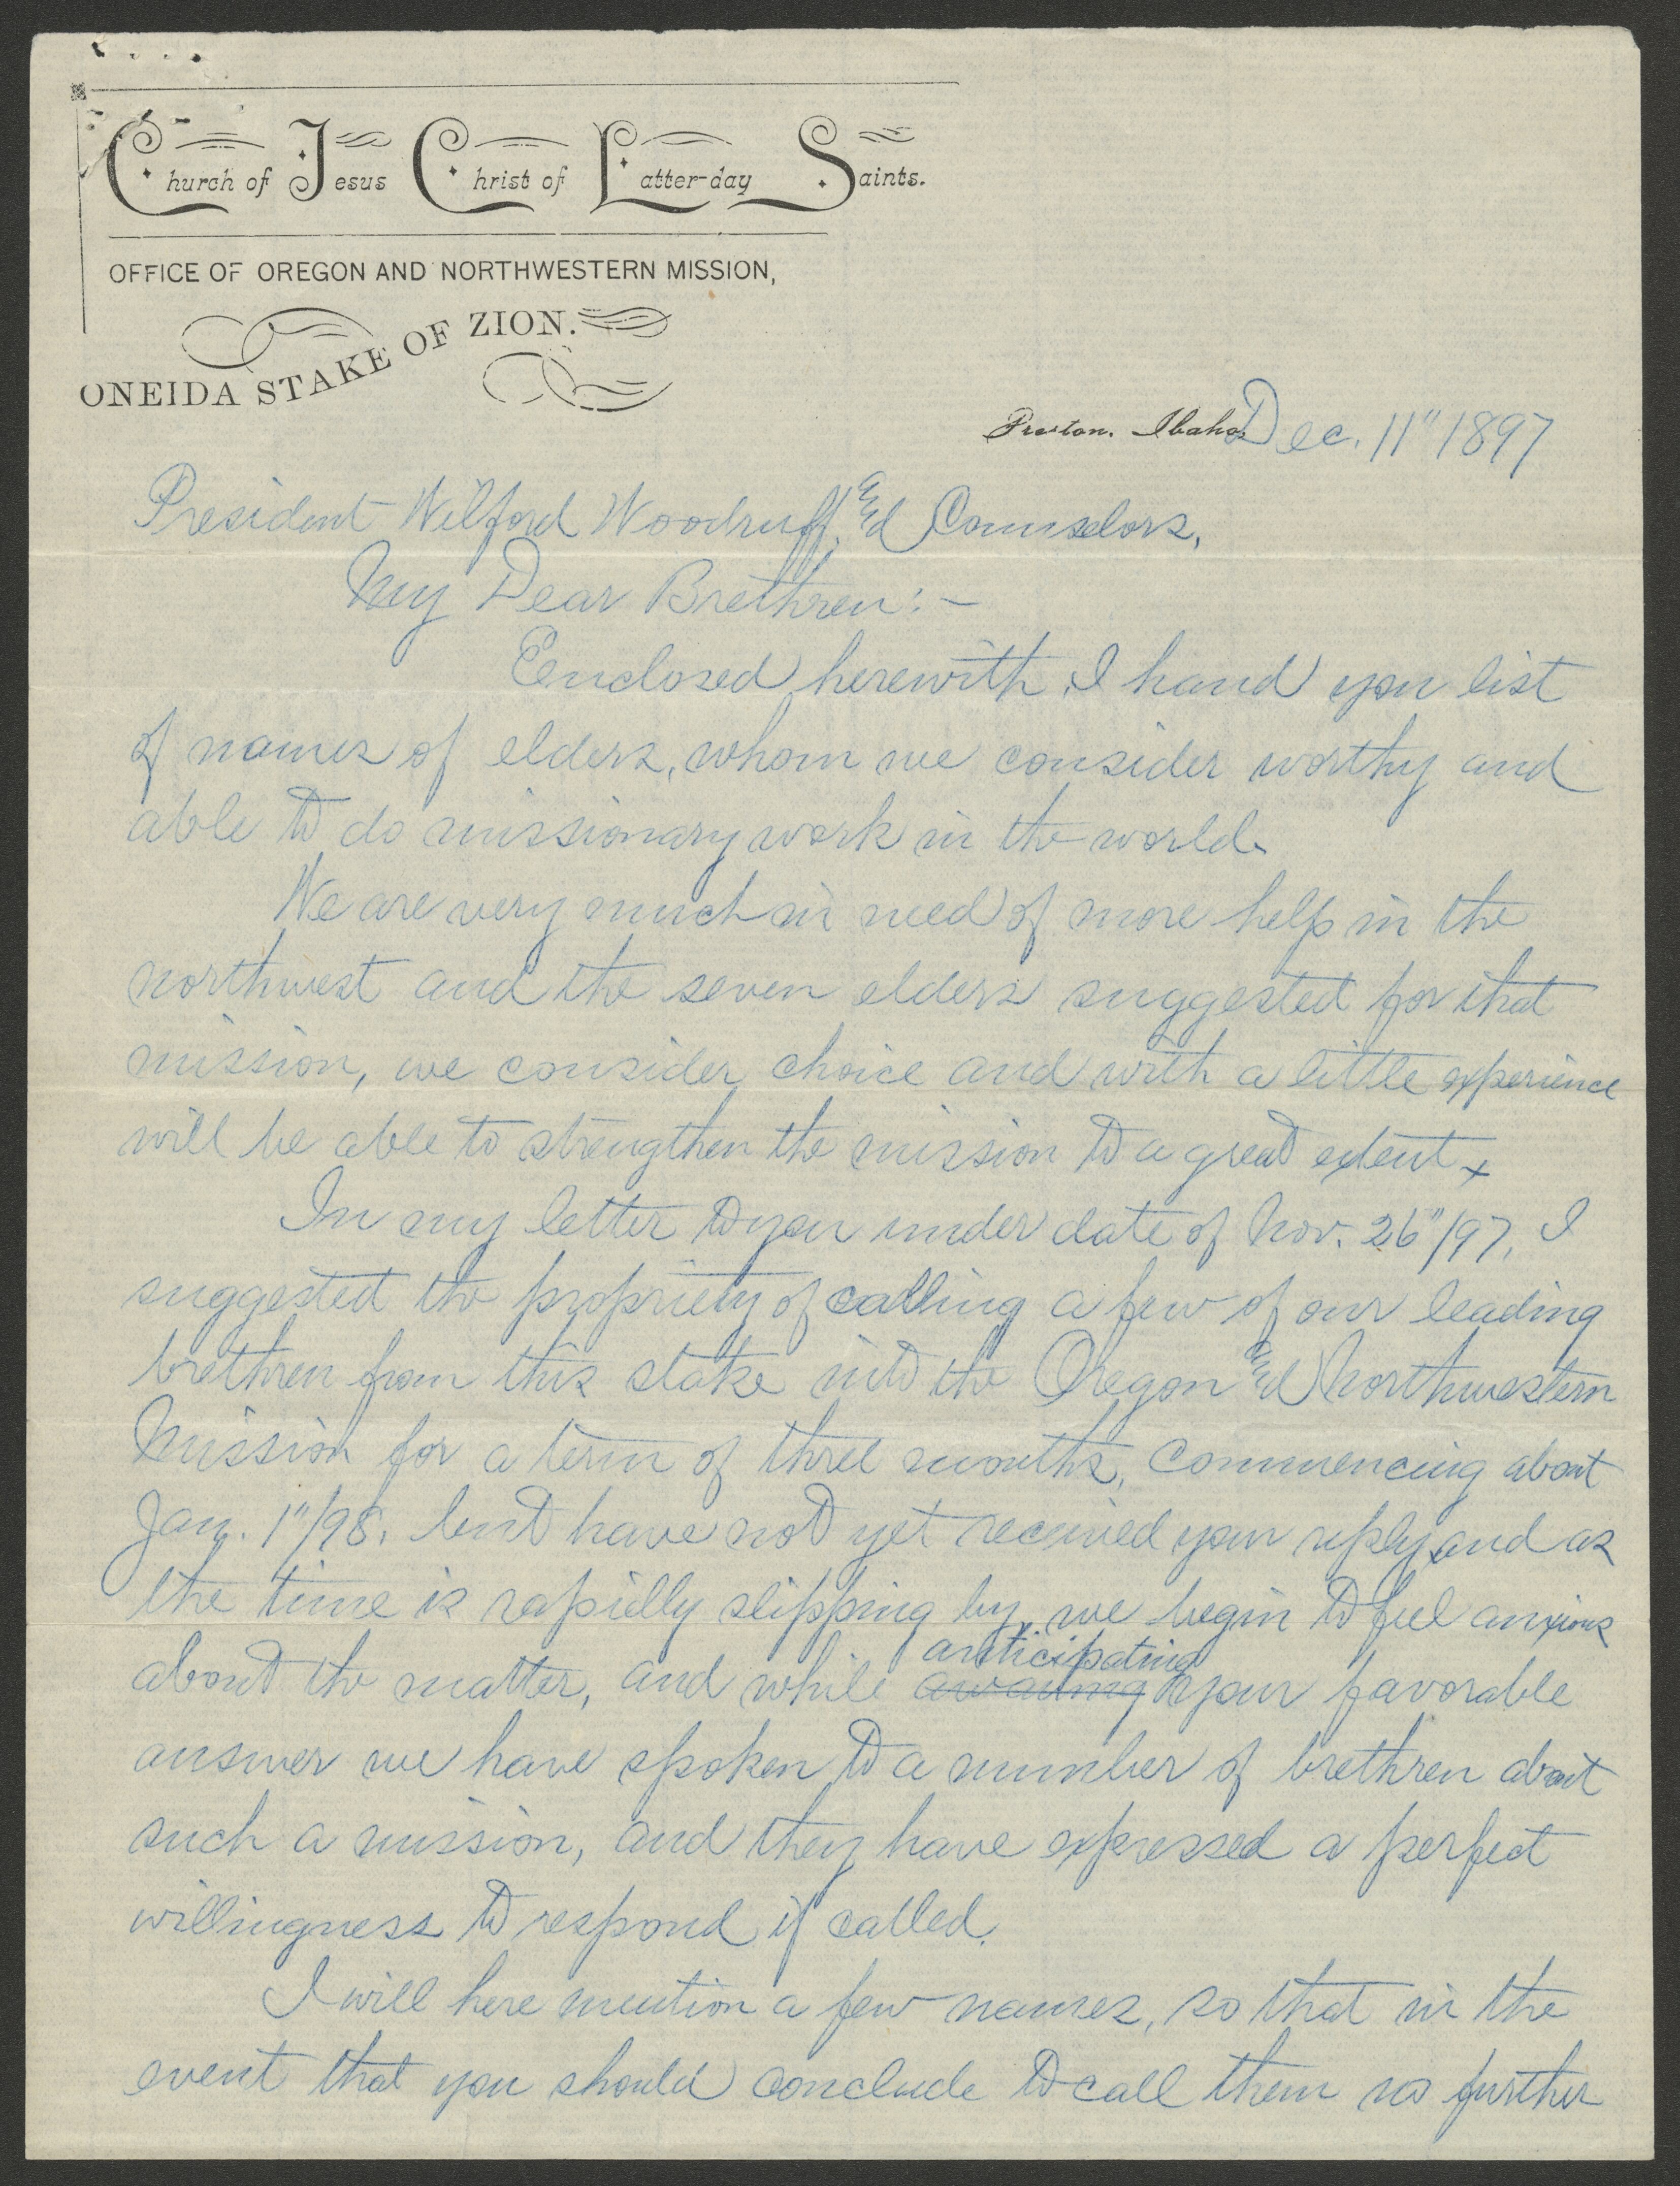 Church of Jesus Christ of Latter-day Saints.
OFFICE OF OREGON AND NORTHWESTERN MISSION,
ONEIDA STAKE OF ZION.
Preston, Idaho, Dec. 11" 1897
President Wilford Woodruff, and Counselors,
My Dear Brethren:-
Enclosed herewith I hand you list
of names of elders, whom we consider worthy and
able to do missionary work in the world.
We are very much in need of more help in the
northwest and the seven elders suggested for that
mission, we consider choice and with a little experience
will be able to strengthen the mission to a great extent.
In my letter to you under date of Nov. 26"/97, I
suggested the propriety of calling a few of our leading
brethren from this stake into the Oregon and Northwestern
Mission for a term of three months, commencing about
Jan. 1"/98, but have not yet received your reply, and as
the time is rapidly slipping by, we begin to feel anxious
anticipating
about the matter, and while awaiting your favorable
answer we have spoken to a number of brethren about
such a mission, and they have expressed a perfect
willingness to respond if called.
I will here mention a few names, so that in the
event that you should conclude to call them no further